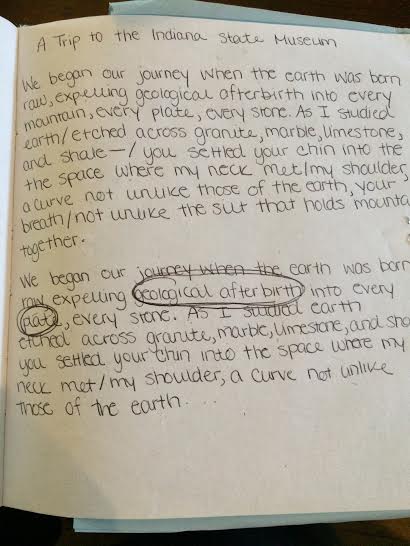 A Trip to the Indiana State Museum
We began our journey when the earth was born
raw, expelling geological afterbirth into every
mountain, every plate, every stone. As I studied
earth/etched across granite, marble, limestone,
and shale—/ you settled your chin into the
the space where my neck met/my shoulder,
a curve not unlike those of the earth, your
breath/not unlike the silt that holds mounta
together.
We began our journey when the earth was born
raw expelling geological afterbirth into every
plate, every stone. As I studied earth
etched across granite, marble, limestone, and sha
you settled your chin into the space where my
neck met/my shoulder, a curve not unlike
those of the earth....